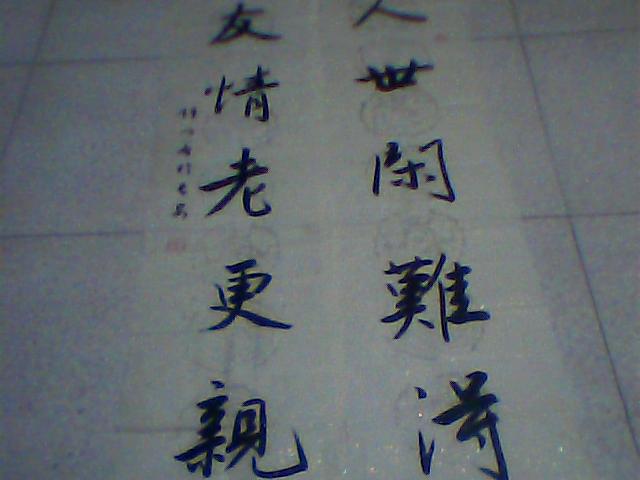 人世閑難得
友情老更親